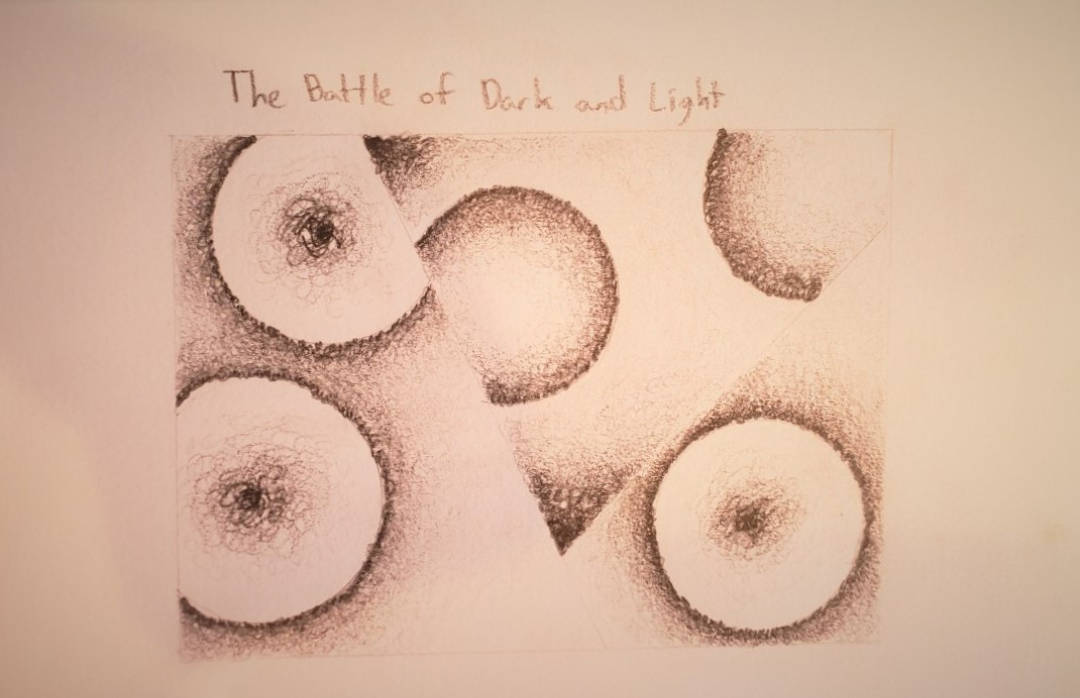 The Battle of Dark and Light